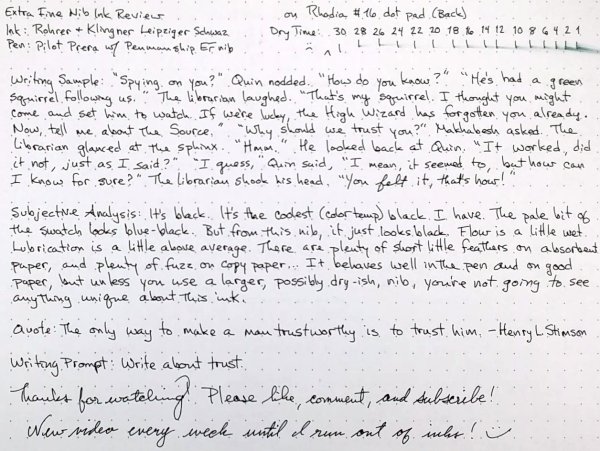 Extra Fine Nib Ink Review on Rhodia #16 dot pad (Back)
Ink: Rohrer + Klingner Leipziger Schwaz Dry Time: 30 28 26 24 22 20 18 16 14 12 10 8 6 4 2 1
Pen: Pilot Prera w/ Penmanship EF nib
Writing Sample: "Spying on you?" Quin nodded. "How do you know?" "He's had a green
squirrel following us." The librarian laughed. "That's my squirrel. I thought you might
come and set him to watch. If we're lucky, the High Wizard has forgotten you already.
Now, tell me about the Source." "Why should we trust you?" Makhabesh asked. The
librarian glanced at the sphinx. "Hmm." He looked back at Quin. "It worked, did
it not, just as I said?" "I guess," Quin said, "I mean, it seemed to, but how can
I know for sure?" The librarian shook his head. "You felt it, that's how!"
Subjective Analysis: It's black. It's the coolest (color temp) black I have. The pale bit of
the swatch looks blue-black. But from this nib, it just looks black. Flow is a little wet.
Lubrication is a little above average. There are plenty of short little feathers on absorbent
paper, and plenty of fuzz on copy paper... It behaves well in the pen and on good
paper, but unless you use a larger, possibly dry-ish, nib, you're not going to see
anything unique about this ink.
Quote: The only way to make a man trustworthy is to trust him. - Henry L. Stimson
Writing Prompt: Write about trust.
Thanks for watching! Please like, comment, and subscribe!
New video every week until I run out of inks!